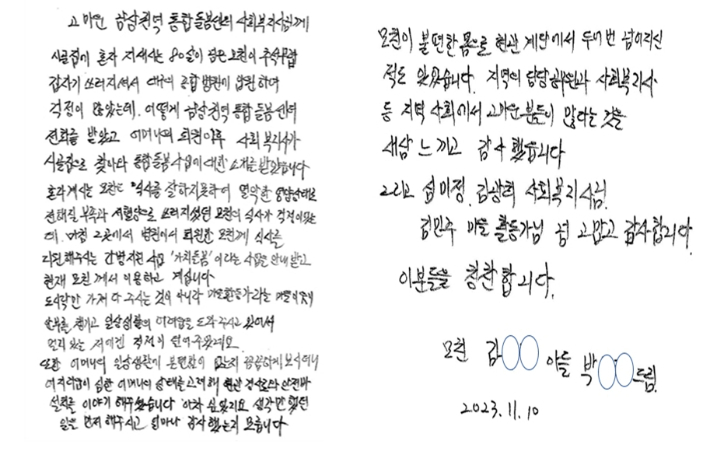 고마운 남부권역 통합돌봄센터 사회복지사님께
시골집에 혼자 지내시는 80살이 넘은 모친이 추석무렵
갑자기 쓰러지셔서 대구의 종합병원에 입원하여
걱정이 많았는데, 어떻게 남부권역 통합돌봄센터
전화를 받았고 어머니의 퇴원이후 사회복지사가
시골집으로 찾아와 통합돌봄사업에 대한 소개를 받았습니다
혼자계시는 모친은 식사를 잘하지못하여 열악한 영양상태로
전해질 부족과 저혈압으로 쓰러지셨던 모친의 식사가 걱정이었는
데, 마침 그곳에서 병원에서 퇴원한 모친께 식사를
지원해주시는 사업 '가치돌봄' 이라는 사업을 안내 받고
현재 모친께서 이용하고 계십니다
도시락만 가져다 주시는 것이 아니라 마을활동가라는
안부를 챙기고 일상생활의 어려움을 도와주시고 있어서
멀리 있는 저에겐 걱정이 덜어주었네요
또한 어머니의 일상생활에 불편함이 없는지 꼼꼼하게 보시더니
어지러움이 심한 어머니의 상태를 고려해 현관 경사로와 안전바
설치를 이야기 해주셨습니다 아차 싶었지요 생각만 했던
일을 먼저 해주시고 얼마나 감사했는지 모릅니다
모친이 불편한 몸으로 현관 계단에서 두어번 넘어지신
적도 있었습니다. 지역의 담당 사회복지사
등 지역 사회에서 고마운 분들이 많다는 것을
새삼 느끼고 감사했습니다
그리고 섭미정, 김광희 사회복지사님,
김민주 마을 활동가님 넘 고맙고 감사합니다.
이분들을 칭찬합니다.
모친 김 아들 박 드림.
2023.11.10